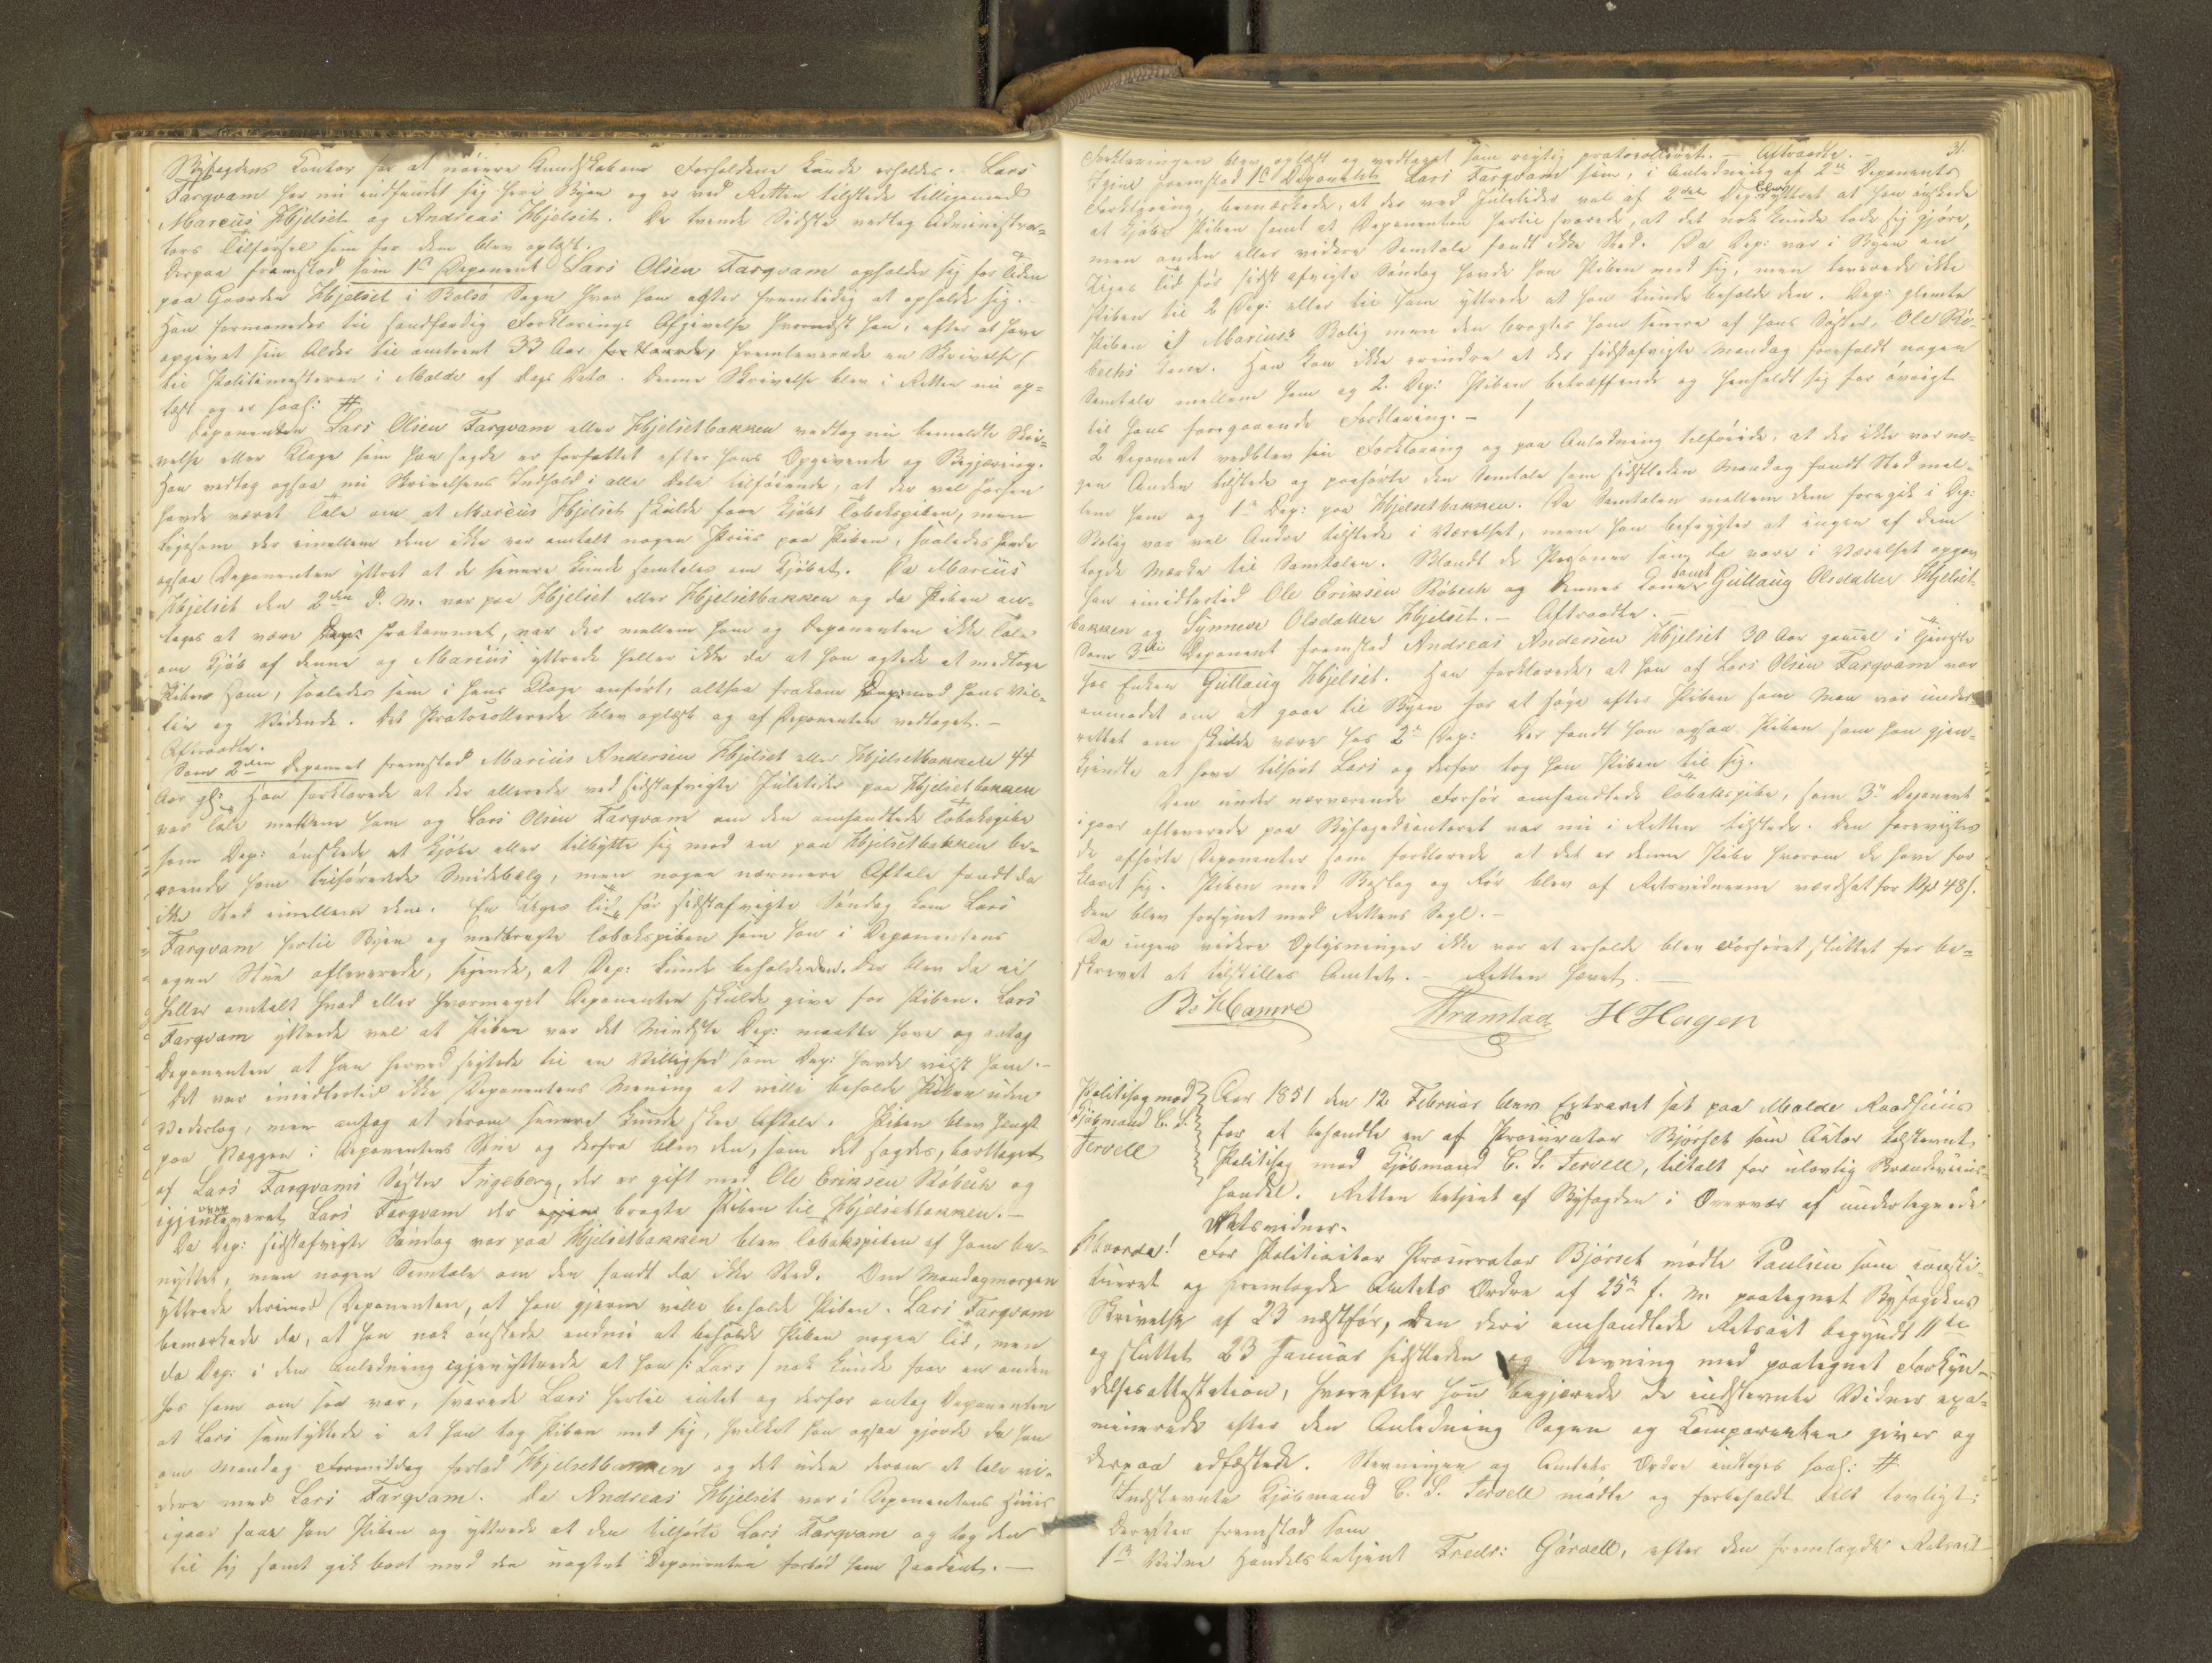 Byfogdens Kontor for at nöiere Kundskab om Forholdene kunde erholdes. – Lars
Farqvam har nu indfundet sig her i Byen og er ved Retten tilstede tilligemed
Marcus Hjelset og Andreas Hjelset. De tvende Sidste vedtog Administra-
tors Tilförsel som for dem blev oplæst.
Derpaa fremstod som 1ste Deponent Lars Olsen Farqvam opholder sig for Tiden
paa Gaarden Hjelset i Bolsö Sogn hvor han agter fremtidig at opholde sig. –
Han formanedes til sandfærdig Forklarings Afgivelse hvornæst han, efter at have
opgivet sin Alder til omtrent 33 Aar forklarede, fremleverede en Skrivelse
til Politimesteren i Molde af Dags Dato. Denne Skrivelse blev i Retten nu op-
læst og er saal: #
Deponenten Lars Olsen Farqvam eller Hjelsetbakken vedtog nu bemeldte Skri-
velse eller Klage som han sagde er forfattet efter hans Opgivende og Begjæring.
Han vedtog ogsaa nu Skrivelsens Indhold i alle Dele tilföiende, at der vel forhen
havde været Tale om at Marcus Hjelset skulde faae kjöbt Tobakspiben, men
ligesom der imellem dem ikke var omtalt nogen Priis paa Piben, saaledes havde
ogsaa Deponenten yttret at de senere kunde samtales om Kjöbet. Da Marcus
Hjelset den 2den d. M. var paa Hjelset eller Hjelsetbakken og da Piben an-
tages at være Dep: frakommet, var der mellem ham og Deponenten ikke Tale
om Kjöb af denne og Marius yttrede heller ikke da at han agtede at medtage
Piben ham, saaledes som i hans Klage anfört, altsaa frakom Dep: mod hans Vil-
lie og Vidende. Det Protocollerede blev oplæst og af Deponenten vedtaget. –
Aftraadte.
Som 2den Deponent fremstod Marius Andersen Hjelset eller Hjelsetbakken 44
Aar gl: Han forklarede at der allerede ved sidstafvigte Juletider paa Hjelsetbakken
var Tale mellem ham og Lars Olsen Farqvam om den omhandlede Tobakspibe
som Dep: önskede at kjöbe eller tilbytte sig mod en paa Hjelsetbakken be-
roende ham tilhörende Smidebælg, men nogen nærmere Aftale fandt da
ikke Sted imellem dem. En Uges Tid för sidstafvigte Söndag kom Lars
Farqvam hertil Byen og medbragte Tobakspiben som han i Deponentens
egen Stue afleverede, sigende, at Dep: kunde beholde den. Der blev da ei
heller omtalt hvad eller hvormeget Deponenten skulde give for Piben. Lars
Farqvam yttrede vel at Piben var det Mindste Dep: maatte have og antog
Deponenten at han herved sigtede til en Villighed som Dep: havde viist ham. –
Det var imidlertid ikke Deponentens Mening at ville beholde Piben uden
Vederlag, men antog at derom senere kunde skee Aftale. Piben blev hængt
paa Væggen i Deponentens Stue og derfra blev den, som det sagdes, borttaget
af Lars Farqvams Söster Ingeborg, der er gift med Ole Eriksen Röbech og
igjenleveret Lars Farqvam der igjen bragte Piben til Hjelsetbakken. –
Da Dep: sidstafvigte Söndag var paa Hjelsetbakken blev Tobakspiben af ham be-
nyttet, men nogen Samtale om den fandt da ikke Sted. Om Mandagmorgen
yttrede derimod Deponenten, at han gjerne ville beholde Piben. Lars Farqvam
bemærkede da, at han nok önskede endnu at beholde Piben nogen Tid, men
da Dep: i den Anledning igjen yttrede at han /: Lars / nok kunde faae en anden
hos ham om saa var, svarede Lars hertil intet og derfor antog Deponenten
at Lars samtykkede i at han tog Piben med sig, hvilket han ogsaa gjorde da han
om Mandag Formiddag forlod Hjelsetbakken og det uden derom at tale vi-
dere med Lars Farqvam. Da Andreas Hjelset var i Deponentens Huus
igaar saae han Piben og yttrede at den tilhörte Lars Farqvam og tog den
til sig samt gik bort med den uagtet Deponenten forböd ham saadant. –
31.
Forklaringen blev oplæst og vedtaget som rigtig protocolleret. – Aftraadte. –
Igien fremstod 1ste Deponent Lars Farqvam som, i Anledning af 2den Deponents
Forklaring, bemærkede, at der ved Juletider vel af 2den Dep: blev yttret at han önskede
at kjöbe Piben samt at Deponenten hertil svarede, at det nok kunde lade sig gjöre,
men anden eller videre Samtale fandt ikke Sted. Da Dep: var i Byen en
Uges Tid för sidst afvigte Söndag havde han Piben med sig, men leverede ikke
Piben til 2 Dep: eller til ham yttrede at han kunde beholde den. Dep: glemte
Piben i Marius's Bolig men den bragtes ham senere af hans Söster, Ole Rö-
bechs Kone. Han kan ikke erindre at der sidstafvigte Mandag forefaldt nogen
Samtale mellem ham og 2. Dep: Piben betræffende og henholdt sig for övrigt
til hans foregaaende Forklaring. –
2 Deponent vedblev sin Forklaring og paa Anledning tilföiede, at der ikke var no-
gen Anden tilstede og paahörte den Samtale som sidstleden Mandag fandt Sted mel-
lem ham og 1ste Dep: paa Hjelsetbakken. Da Samtalen mellem dem foregik i Dep:
Bolig var vel Andre tilstede i Værelset, men han befrygter at ingen af dem
lagde Mærke til Samtalen. Blandt de Personer som da vare i Værelset opgav
han imidlertid Ole Eriksen Röbech og dennes Kone samt Gullaug Olsdatter Hjelset-
bakken og Synneve Olsdatter Hjelset. – Aftraadte. –
Som 3die Deponent fremstod Andreas Andersen Hjelset 30 Aar gamel i Tjeneste
hos Enken Gullaug Hjelset. Han forklarede, at han af Lars Olsen Farqvam var
anmodet om at gaae til Byen for at söge efter Piben som man var under-
rettet om skulde være hos 2den Dep: Der fandt han ogsaa Piben som han gjen-
kjendte at have tilhört Lars og derfor tog han Piben til sig.
Den under nærværende Forhör omhandlede Tobakspibe, som 3die Deponent
igaar afleverede paa Byfogedcontoret var nu i Retten tilstede. Den forevistes
de afhörte Deponenter som forklarede at det er denne Pibe hvorom de have for
klaret sig. Piben med Beslag og Rör blev af Retsvidnerne værdsat for 48 s.
Den blev forsynet med Rettens Segl. –
Da ingen videre Oplysninger ikke var at erholde blev Forhöret sluttet for be-
skrevet at tilstilles Amtet. – Retten hævet. –
B. Hamre Transtad H Hagen
Politisag mod
Kjöbmand C. S.
Tervell
Aar 1851 den 12 Februar blev Extraret sat paa Molde Raadhuus
for at behandle en af Procurator Bjórset som Actor tilstevnt
Politisag mod Kjöbmand C. S. Tervell, tiltalt for ulovlig Brændeviins-
handel. Retten betjent af Byfogden i Overvær af undertegnede
Retsvidner.
Hvorda! For Politiactor Procurator Bjórset mödte Paulsen som consti-
tueret og fremlagde Amtets Ordre af 25de f. M. paategnet Byfogdens
Skrivelse af 23 næstför, den deri omhandlede Retsact begyndt 11te
og sluttet 23 Januar sidstleden og Stevning med paategnet Forkyn-
delsesattestation, hvorefter han begjærede de indstevnte Vidner exa-
minerede efter den Anledning Sagen og Comparenten giver og
derpaa edfæstede. Stevningen og Amtets Ordre indtages saal: #
Indstevnte Kjöbmand C. S. Tervell mödte og forbeholdt Alt lovligt:
Derefter fremstod som
1ste Vidne Handelsbetjent Fredr: Gørvell, efter den fremlagde Retsact